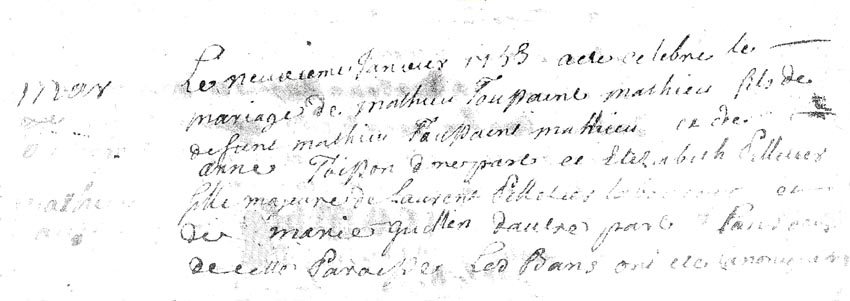 Le neuvieme Janvier 1753 a ete celebre le
mar
mariage de mathieu Toussaint mathieu fils de
defunt mathieu Toussaint mathieu et de
anne Toison d'une part et Elizabeth Pelletier
fille majeure de Laurent Pelletier
de marie d'autre part
de cette Paroisse Led Bans ont ete